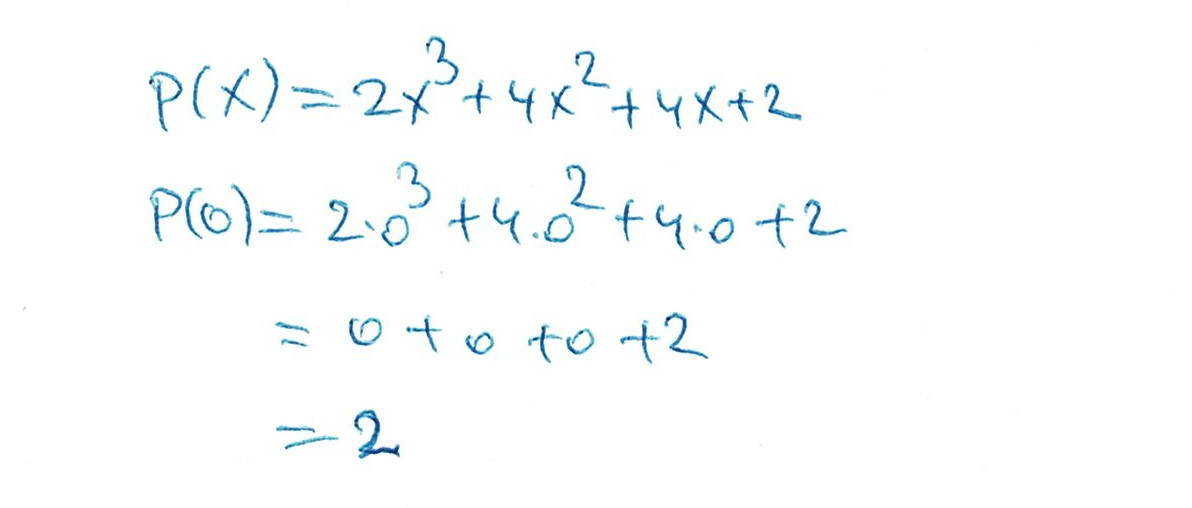 P(X)=2x³+4x²+4x+2
P(0)=2·0³+4.0²+4·0+2
=0+0+0+2
=2